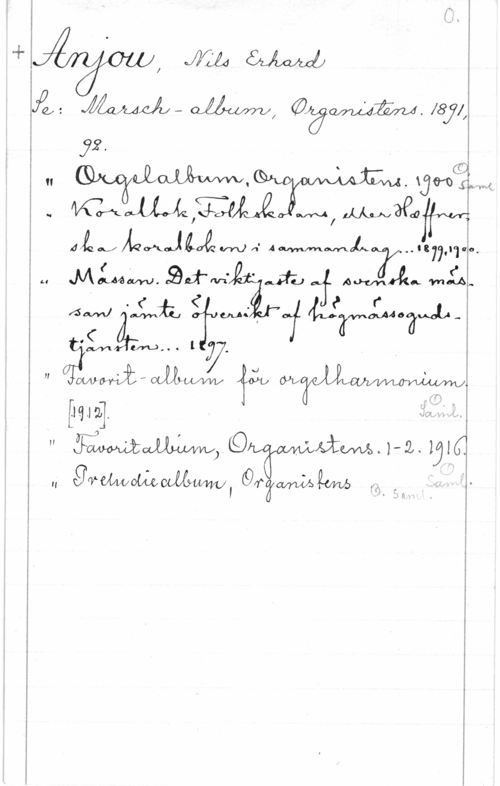 O.
+ Anjou, Nils Erhard
Se: Marsch-album, Organistens. 1891,
92.
" Orgelalbum, Organistens. 1900 O. Saml
" Koralbok, Folkskolans, eller Hæffner-
ska koralboken i sammandrag... 1899, 1900.
" Mässan. Det viktigaste af svenska mäs-
san jämte öfversikt af högmässoguds-
tjänsten... 1897.
" Favorit-album för orgelharmonium.
[1912]. O. Saml.
" Favoritalbum, Organistens. 1-2. 1916.
" Preludiealbum, Organistens O. Saml. O. Saml.